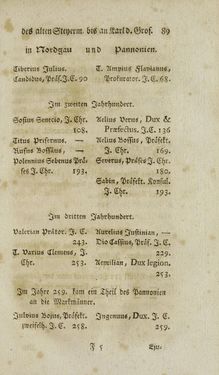 des alten Steyerm. bis an Karl d. Gros. 89
in Nordgau und Pannonien.
Tiberius Julius. T. Ampius Flavianus,
Candidus, Präs. J. C. 90 Prokurator. J. C. 68.
Im zweiten Jahrhundert.
Sosius Senecio, J. Chr. Aelius Verus, Dux &
108. Praefectus, J. C. 136
Titus Prefernus. — Aelius Bossius, Präfekt.
Rufus Bossäus, — J. Chr. 169.
Volennius Sebenus Prä- Severus, Präses J. Chr.
ses J. Chr. 193. 180.
Sabin, Präfekt. Konsul.
J. Chr. 193.
Im dritten Jahrhundert.
Valerian Prätor. J. C. Aurelius Justinian, —
243. Dio Cassius, Prät. J. C.
T. Varius Clemens, J. 229.
Chr. 253. Aemilian, Dux legion.
253.
Im Jahre 259. kam ein Theil des Pannonien
an die Markmänner.
Julvius Bojus, Präfekt. Ingenuus, Dux. J. C.
zweifelh. J. C. 258. 259.
F 5